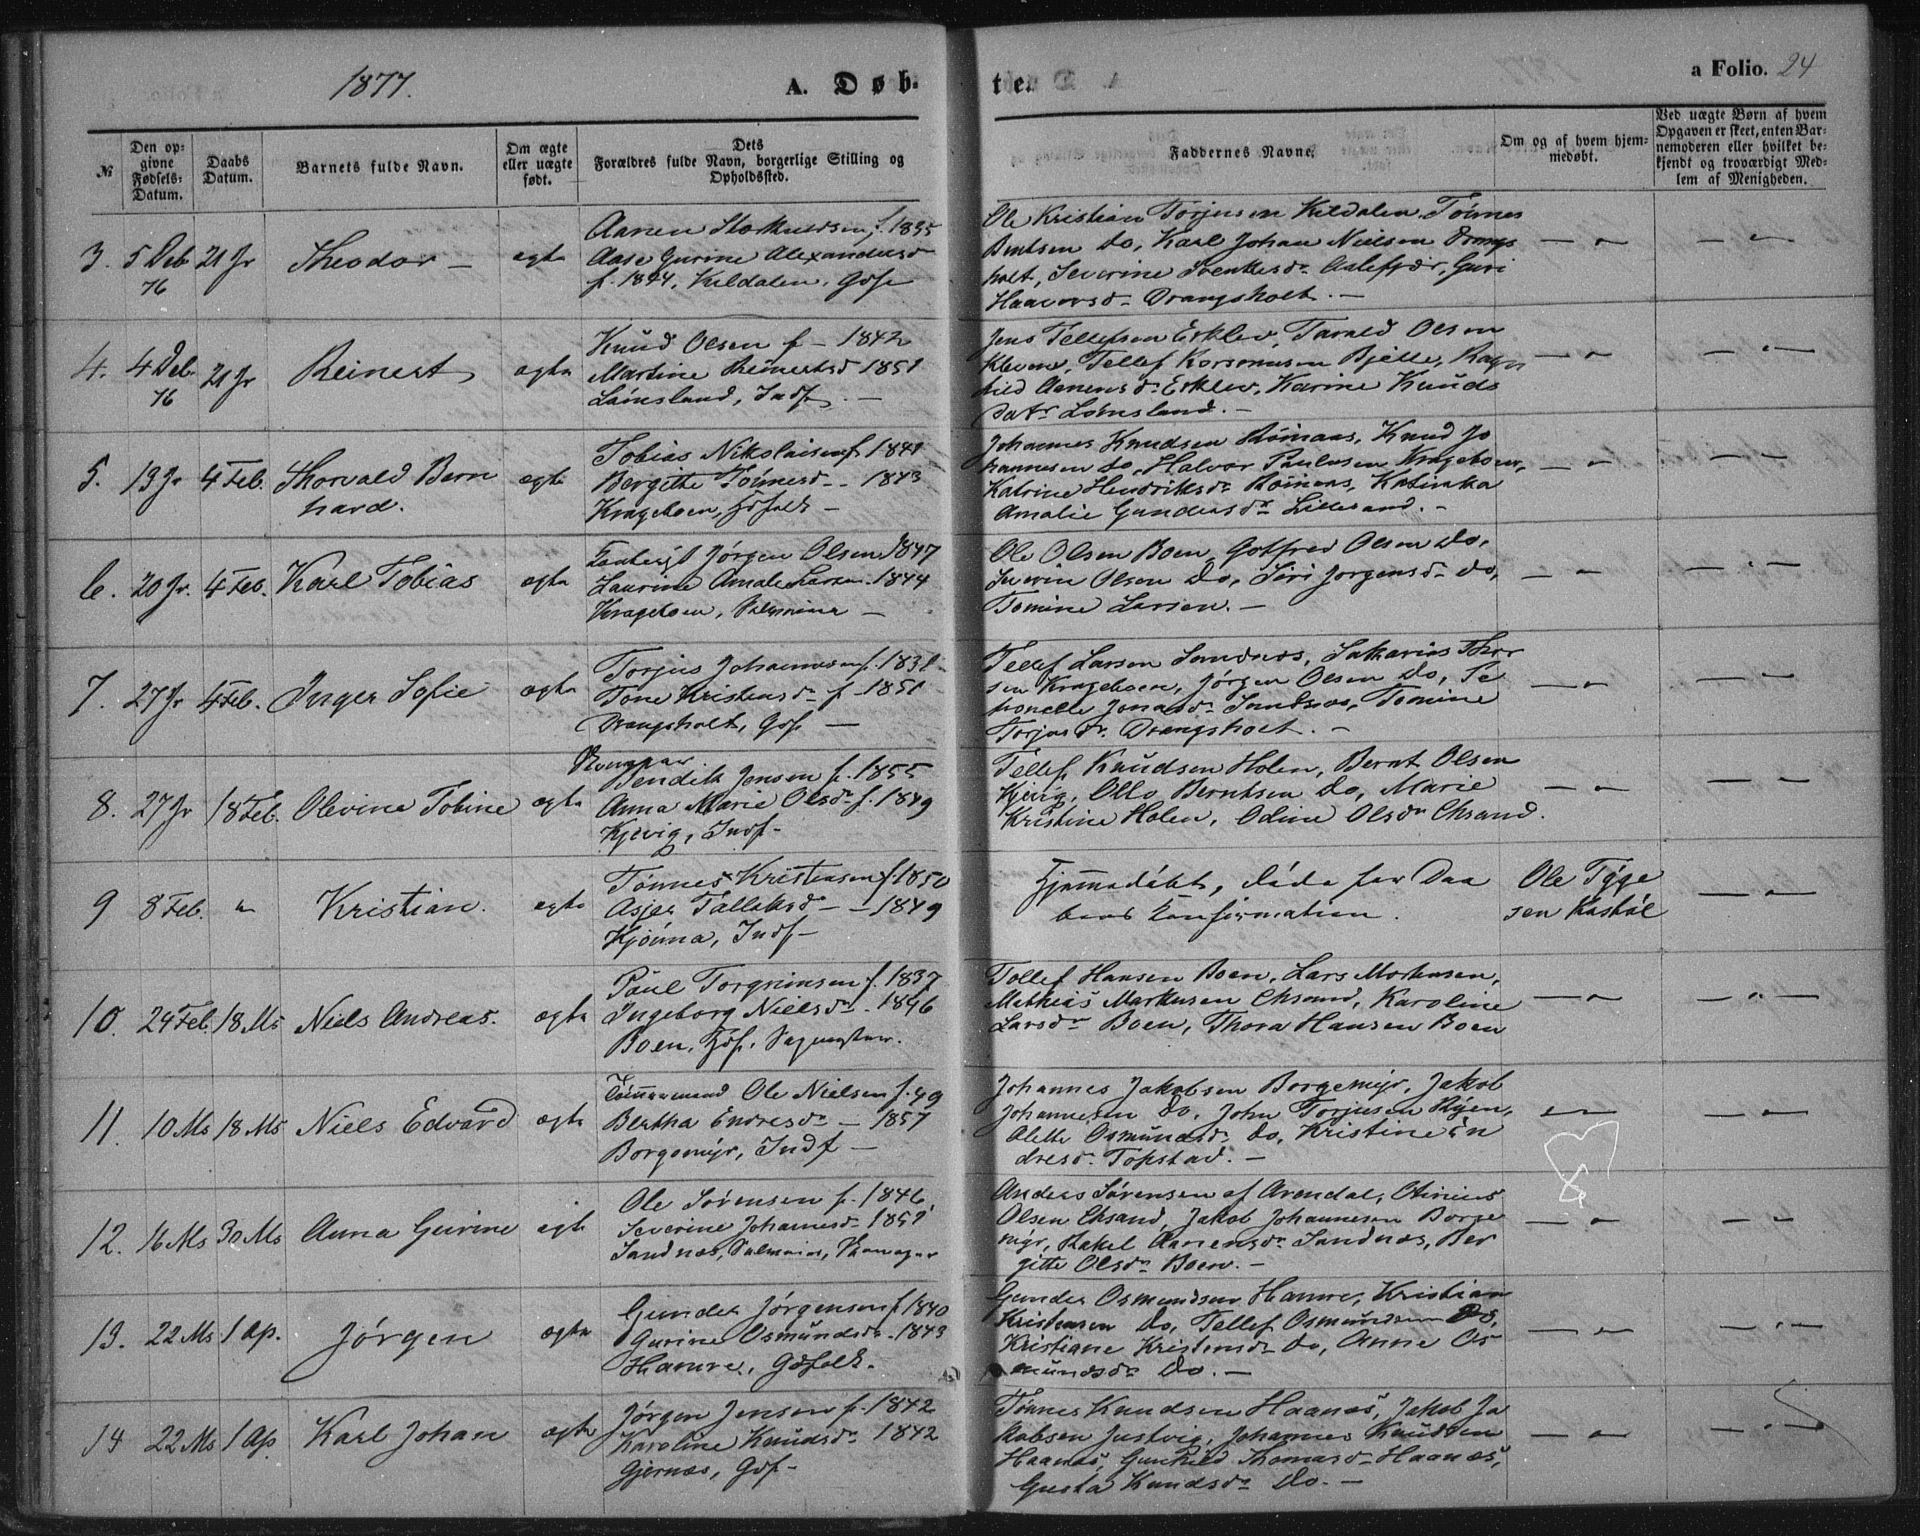 1877.
A. Døb-
ter.
a Folio. 24
№
Den op-
givne
Fødsels-
Datum.
Daabs
Datum.
Barnets fulde Navn.
Om ægte
eller uægte
født.
Dets
Forældres fulde Navn, borgerlige Stilling og
Opholdssted.
Faddernes Navne.
Om og af hvem hjem-
medøbt.
Ved uægte Børn af hvem
Opgaven er skeet, enten Bar-
nemoderen eller hvilket be-
kjendt og troværdigt Med-
lem af Menigheden.
3. 5 Deb 76 21 Jr Theodor — ægte
Aanen Storkersen f. 1835
Aase Gurine Alexandersd
f. 1844, Kildalen, Gdf
Ole Kristian Torjusen Kildalen, Tönnes
Berntsen do, Karl Johan Nielsen Drangs
holt, Severine Svenkesdr Aalefjær, Guri
Haavorsdr Drangsholt. —
4. 4 Deb 76 21 Jr Reinert ægte
Knud Olsen f — 1842
Martine Reinertsd 1851
Lömsland, Indf. —
Jens Tellefsen Erklev, Tarald Olsen
Kleven, Tellef Korsmusen Bjelle, Ragn
hild Aanensdr Erklev, Karine Knuds
datr Lömsland. —
5. 13 Jr 4 Feb. Thorvald Bern
hard. ægte
Tobias Nikolaisen f 1841
Bergitte Tönnesd — 1843
Krageboen, Gdfolk —
Johannes Knudsen Römaas, Knud Jo
hannesen do, Halvor Paulusen Krageboen,
Katrine Hendriksdr Römaas, Katinka
Amalie Gundersdr Lillesand. —
6. 20 Jr. 4 Feb. Karl Tobias ægte
Jørgen Olsen 1847
Laurine Amalie Larsen 1844
Krageboen,
Ole Olsen Boen, Gotfred Olsen do,
Severin Olsen do, Siri Jorgensdr do,
Tomine Larsen. —
7. 27 Jr 4 Feb. Inger Sofie ægte
Torjus Johannesen f. 1831
Tone Kristensdr f 1851
Drangsholt, Gdf. —
Tellef Larsen Sandnæs, Sakarias Thor
sen Krageboen, Jørgen Olsen do, Se
nonelle Jonasdr Sandnæs, Tomine
Torjusdr Drangsholt. —
8. 27 Jr 18 Feb. Olevine Tobine ægte
Bendik Jensen f. 1855
Anna Marie Olsdr f. 1849
Kjevig, Indf —
Tellef Knudsen Holen, Bernt Olsen
Kjevig, Otto Berntsen do, Marie
Kristine Holen, Odine Olsdr Chsand.
9 8 Feb. " Kristian. ægte
Tönnes Kristensen f 1850
Asjer Tallaksdr — 1849
Kjönna, Indf —
Hjemmedöbt, döde för Daa
bens Konfirmation.
Ole Tyge
sen Kasböl
10. 24 Feb. 18 Ms Niels Andreas. ægte
Paul Torgrimsen f. 1837
Ingeborg Nielsdr — 1846
Boen, Gdf,
Tellef Hansen Boen, Lars Mortensen,
Mathias Markusen Chsand, Karoline
Larsdr Boen, Thora Hansen Boen
11. 10 Ms 18 Ms Niels Edvard ægte
Tömmermand Ole Nielsen f. 49
Bertha Endresdr — 1857
Borgemyr, Indf —
Johannes Jakobsen Borgemyr, Jakob
Johannesen do, John Torjusen Ryen,
Olette Osmundsdr do, Kristine En
dresdr Topstad. —
12. 16 Ms 30 Ms Anna Gurine ægte
Ole Sørensen f. 1846
Severine Johannesdr 1851
Sandnæs,
Anders Sørensen af Arendal, Otinius
Olsen Chsand, Jakob Johannesen Borge
myr, Rakel Aanensdr Sandnæs, Ber
gitte Olsdr Boen. —
13. 22 Ms 1 Ap. Jørgen ægte
Gunder Jørgensen f 1840
Gurine Osmundsdr 1843
Hamre, Gdfolk.
Gunder Osmundsen Hamre, Kristian
Kristensen do, Tellef Osmundsen Do,
Kristiane Kristensdr do, Anne Os
mundsdr do. —
14 22 Ms 1 Ap Karl Johan ægte
Jørgen Jensen f. 1842
Karoline Knudsdr 1842
Gjernæs, Gdf —
Tönnes Knudsen Haanes, Jakob Ja
kobsen Justvig, Johannes Knudsen
Haanes, Gunhild Thomasdr Haanes,
Gusta Knudsdr do. —